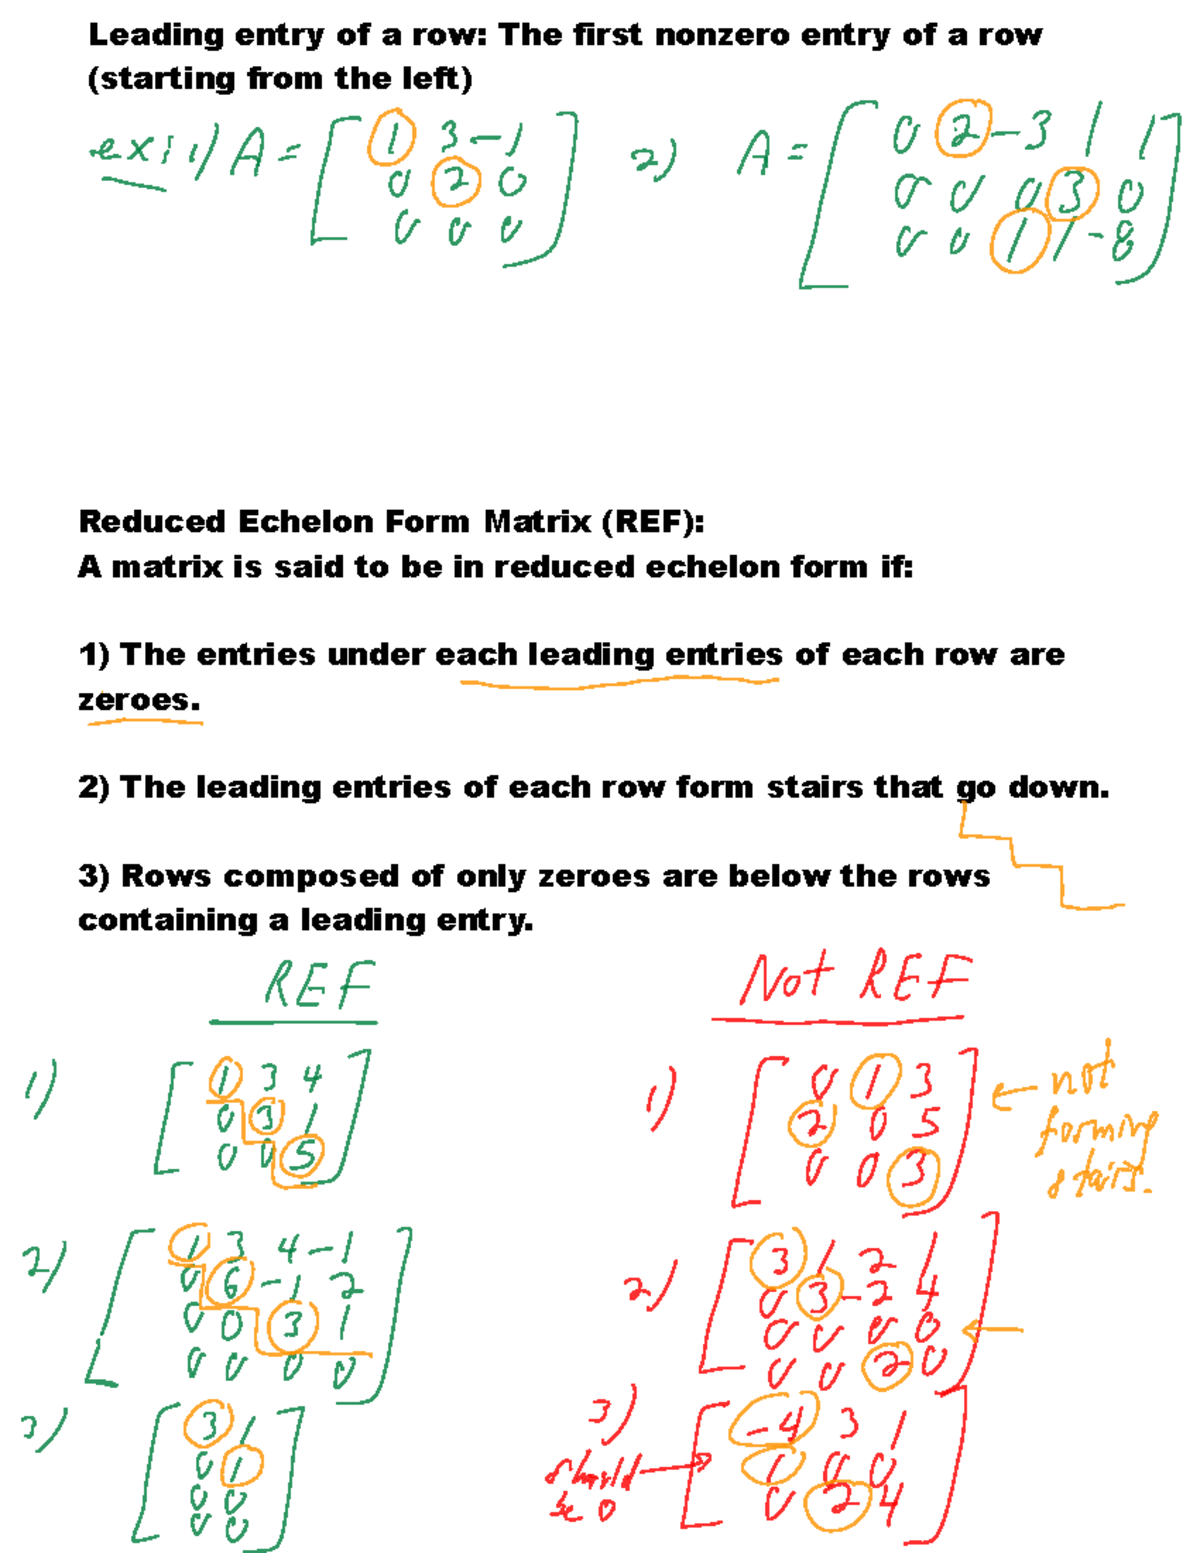 Leading entry of a row: The first nonzero entry of a row
(starting from the left)
ex: 1) A = [ 1 3 -1
0 2 0
0 0 0 ]
2) A = [ 0 2 -3 1 1
0 0 0 3 0
0 0 1 1 -8 ]
Reduced Echelon Form Matrix (REF):
A matrix is said to be in reduced echelon form if:
1) The entries under each leading entries of each row are
zeroes.
2) The leading entries of each row form stairs that go down.
3) Rows composed of only zeroes are below the rows
containing a leading entry.
REF
1) [ 1 3 4
0 3 1
0 0 5 ]
2) [ 1 3 4 -1
0 6 -1 2
0 0 3 1
0 0 0 0 ]
3) [ 3 1
0 1
0 0
0 0 ]
Not REF
1) [ 0 1 3
2 0 5
0 0 3 ]
← not
forming
stairs.
2) [ 3 1 2 1
0 3 -2 4
0 0 0 0 ←
0 0 2 0 ]
3) [ -4 3 1
1 0 0
0 2 4 ]
should →
be 0